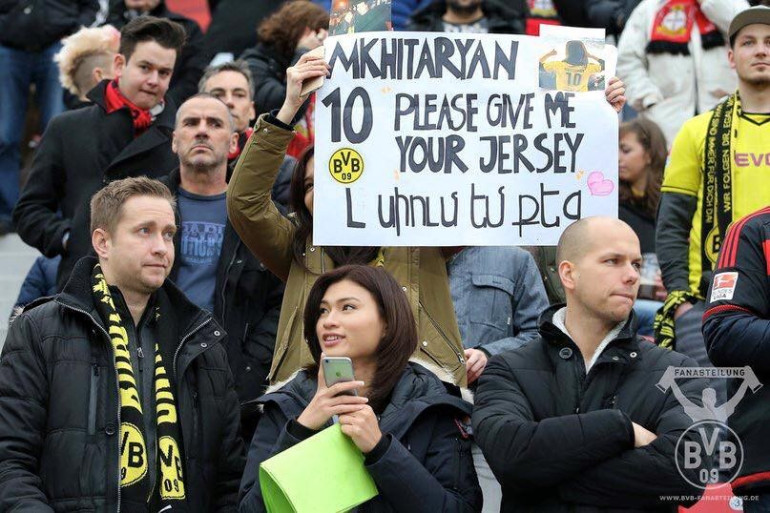 MKHITARYAN
10 PLEASE GIVE ME
YOUR JERSEY
BVB
09
Լ սիրում եմ քեզ
10
EVO
WIR FOLGEN DIR
BVB
09
BVB
09
FANABTEILUNG
BVB
09
WWW.BVB-FANABTEILUNG.DE